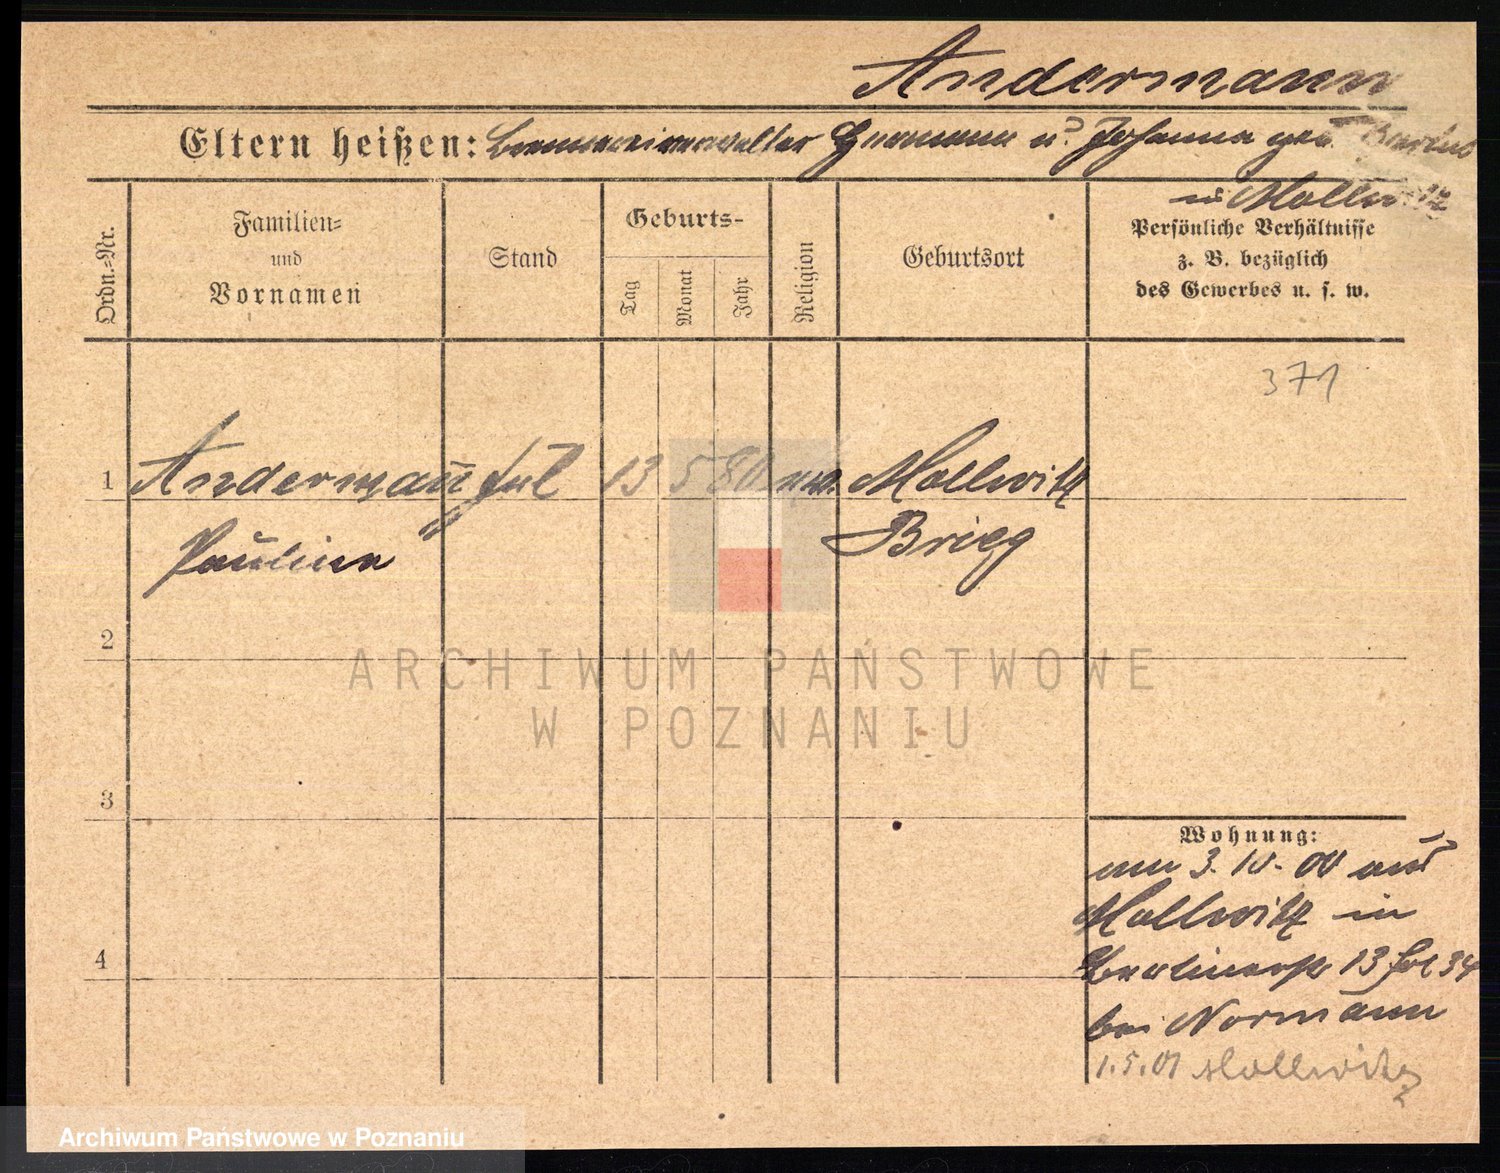 Andermann
Eltern heißen: Brennereiverwalter Hermann u. Johanna geb.
in Mollwitz
Ordn.-Nr.
Familien-
und
Vornamen
Stand
Geburts-
Tag
Monat
Jahr
Religion
Geburtsort
Persönliche Verhältnisse
z. B. bezüglich
des Gewerbes u. s. w.
371
1 Andermann Frl 13 5 80 ev. Mollwitz
Pauline Brieg
2
3
4
ARCHIWUM PAŃSTWOWE
W POZNANIU
Wohnung:
am 3. 10. 00 aus
Mollwitz in
Berlinerstr 13
bei Normann
1.5.01 Mollwitz
Archiwum Państwowe w Poznaniu